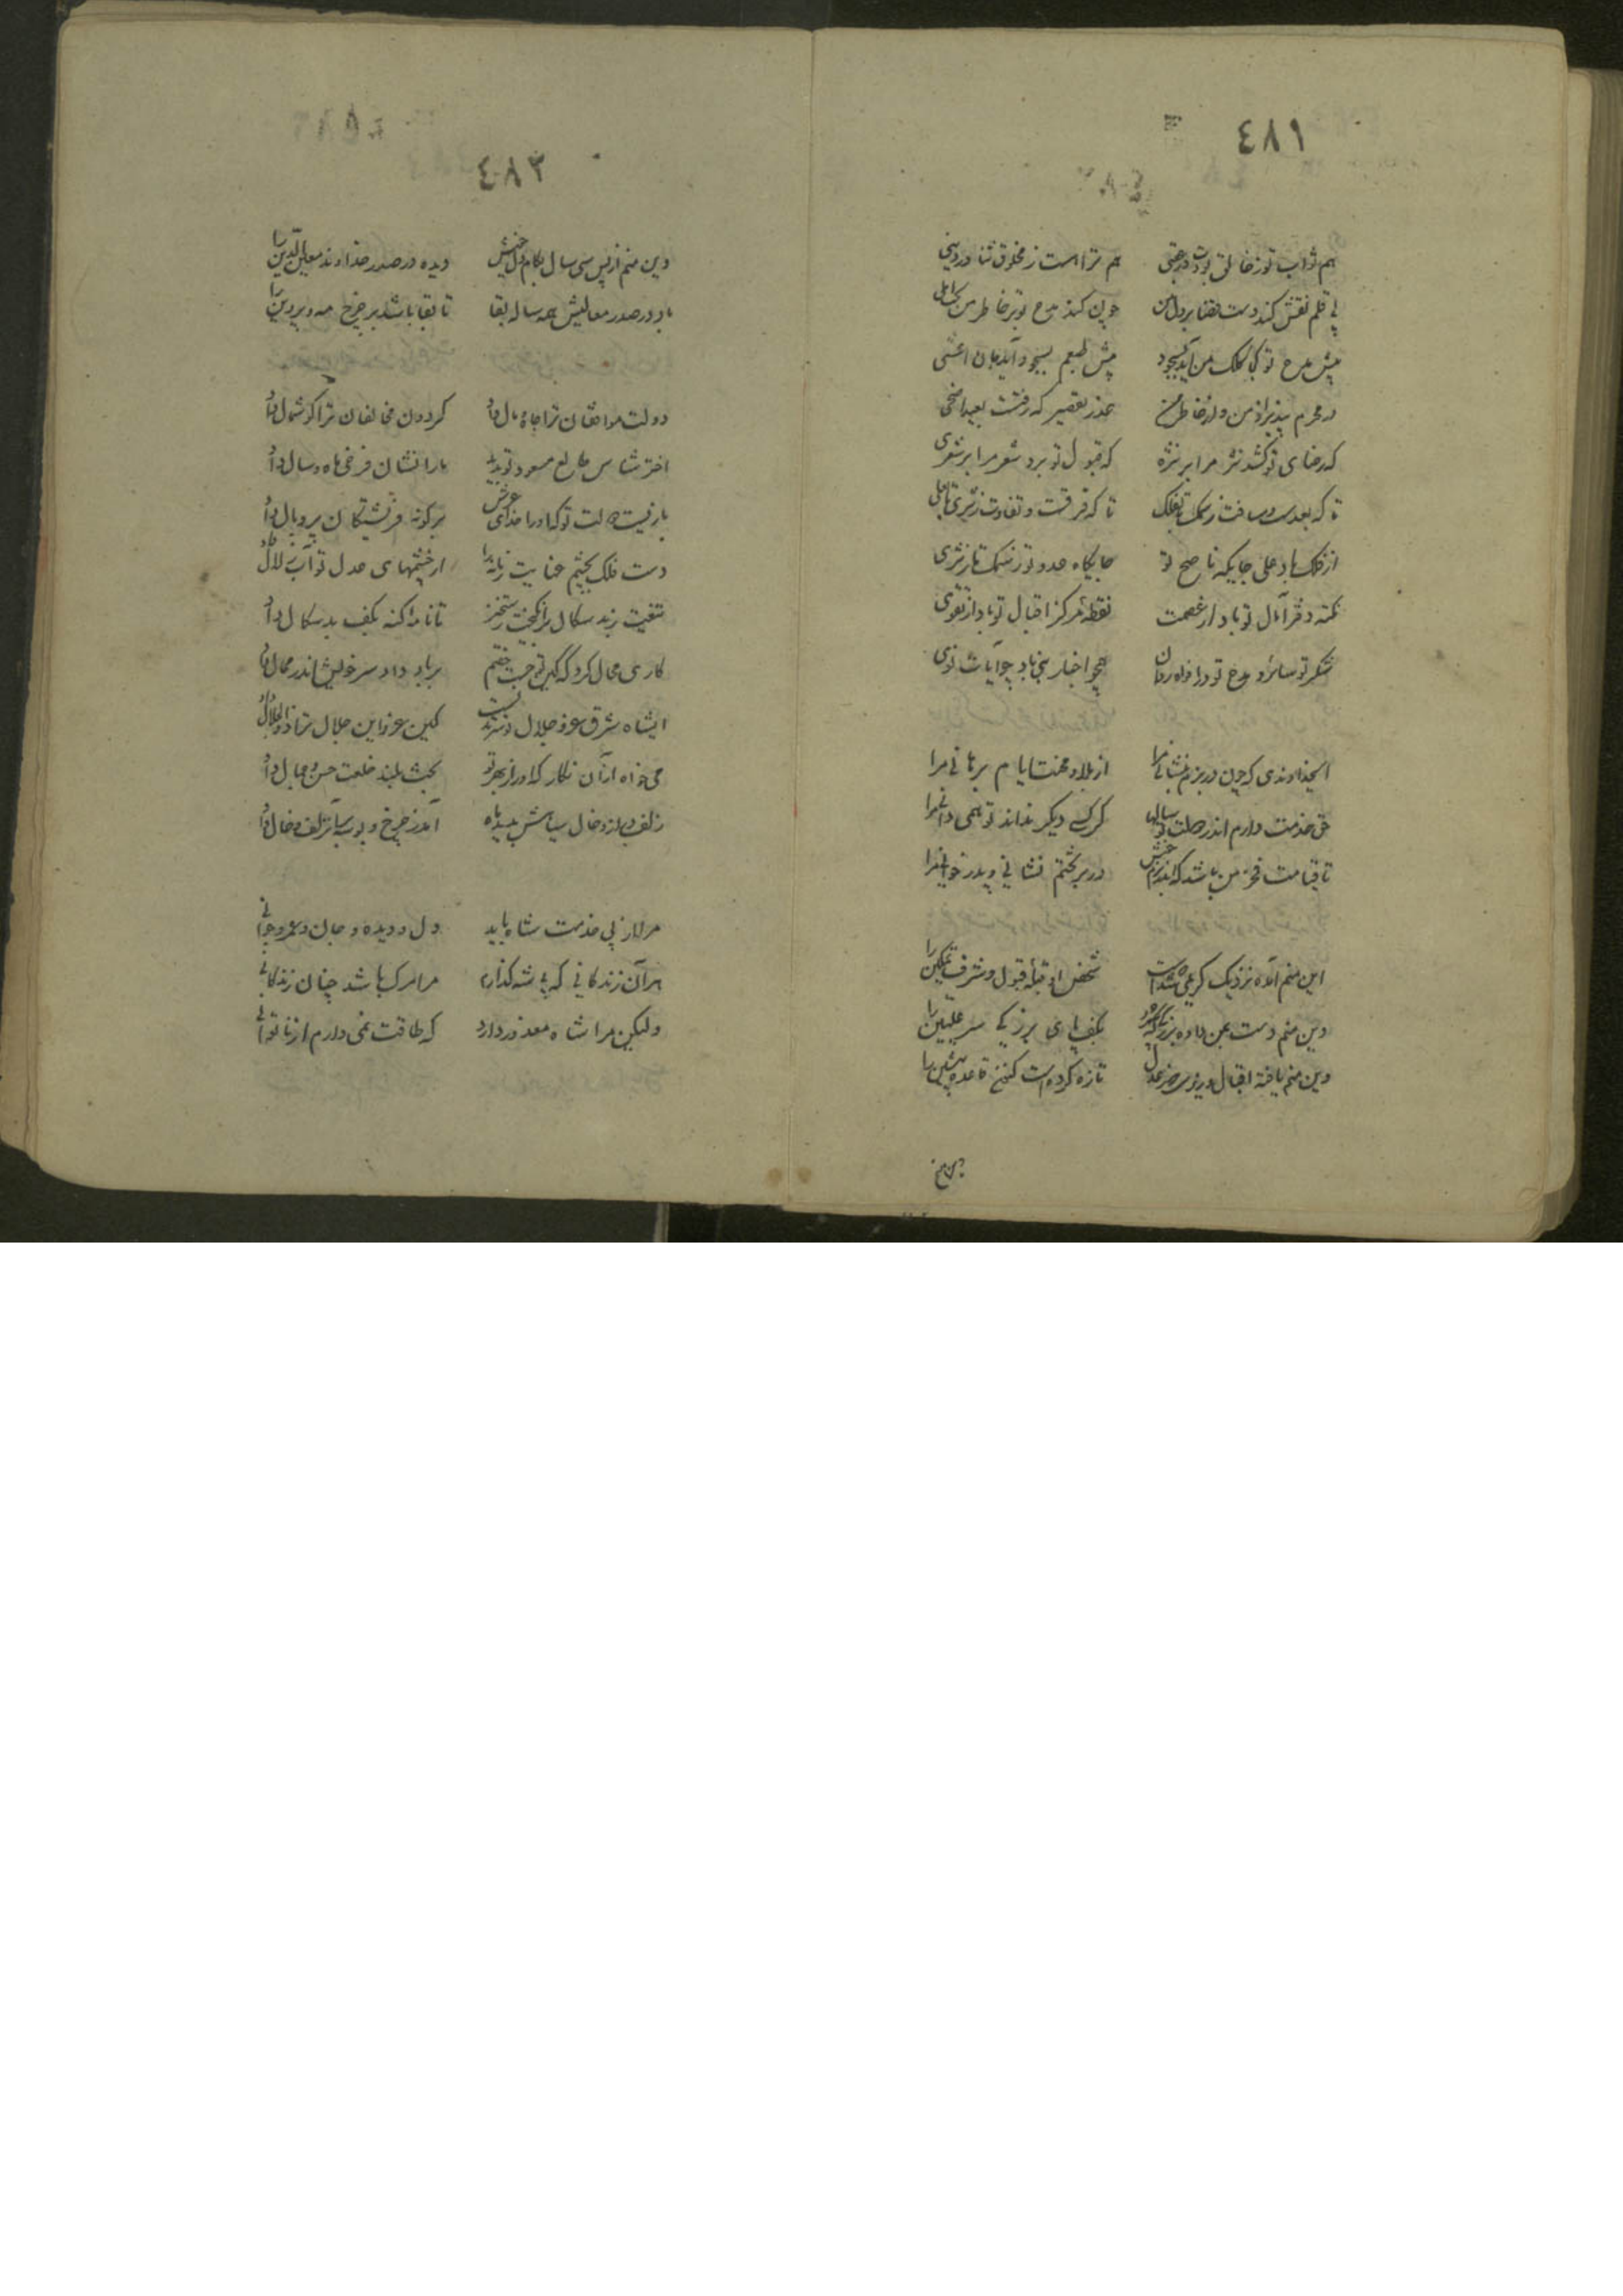 ٤٨١
هم ثواب تو ز خالق بود در عقبی هم ترا است ز مخلوق ثنا در دنیی
بی قلم نقش کند دست قضا بر دل من چون کند مدح تو بر خاطر من املی
پیش مدح تو کلک من آید بسجود پیش طبعم بسجود آید جان اعشی
در محرم بپذیر از من و از خاطر من عذر تقصیر که رفتست بعید اضحی
که رضای تو کشد نثر مرا بر نثره که قبول تو برد شعر مرا بر شعری
تا که بعدست و مسافت ز سمک تا بفلک تا که فرقست و تفاوت ز ثری تا
از فلک باد علی جایگه ناصح تو جایگاه عدو تو ز سمک تا بثری
نکته دفتر آمال تو باد از عصمت نقطه مرکز اقبال تو باد از تقوی
شکر تو سائر و مدح تو در افواه روان همچو اخبار نبی باد چو آیات نوی
ایخداوندی که چون در بزم بنشانی مرا از بلا و محنت ایام برهانی مرا
حق خدمت دارم اندر دولت تو سالها گر کسی دیگر نداند تو همی دانی مرا
تا قیامت فخر من باشد که اندر بزم خویش در بر تختم نشانی و پدر خوانی مرا
این منم آمده نزدیک کریمی که شدست شخص او قبله قبول و شرف تمکین را
وین منم دست بمن داده بزرگی که سپرد بکف پای بزرگی سر علیین را
وین منم یافته اقبال وزیری کز عدل تازه کرده است کنون قاعده پیشین را
وین منم
٤٨٣
وین منم از پس سی سال بکام دل خویش دیده در صدر خداوند معین الدین را
باد در صدر معالیش همه ساله بقا تا بقا باشد بر چرخ مه و پروین را
دولت موافقان ترا جاه و مال داد گردون مخالفان ترا گوشمال داد
اختر شناس طالع مسعود تو بدید ما را نشان فرخی ماه و سال داد
بار نیست دولت تو که او را خدای عرش بر گونه فرشتگان پر و بال داد
دست فلک بچشم عنایت زمانه را از چشمهای عدل تو آب زلال داد
تیغت ز بدسگال برانگیخت رستخیز تا نامه گنه بکف بدسگال داد
کاری محال کرد که کین تو جست خصم بر باد داد سر خویش اندر محال داد
ایشاه شرق عز و جلال تو سرمدیست کین عز و این جلال ترا ذوالجلال داد
می خواه از آن نگار که او را ز بهر تو بخت بلند خلعت حسن و جمال داد
زلف دراز و خال سیاهش بدید ماه آمد ز چرخ و بوسه بر آن زلف و خال داد
مرا از پی خدمت شاه باید دل و دیده و جان و عمر و جوانی
هر آن زندگانی که بی شه گذارم مرا مرگ باشد چنان زندگانی
ولیکن مرا شاه معذور دارد که طاقت نمی دارم از ناتوانی